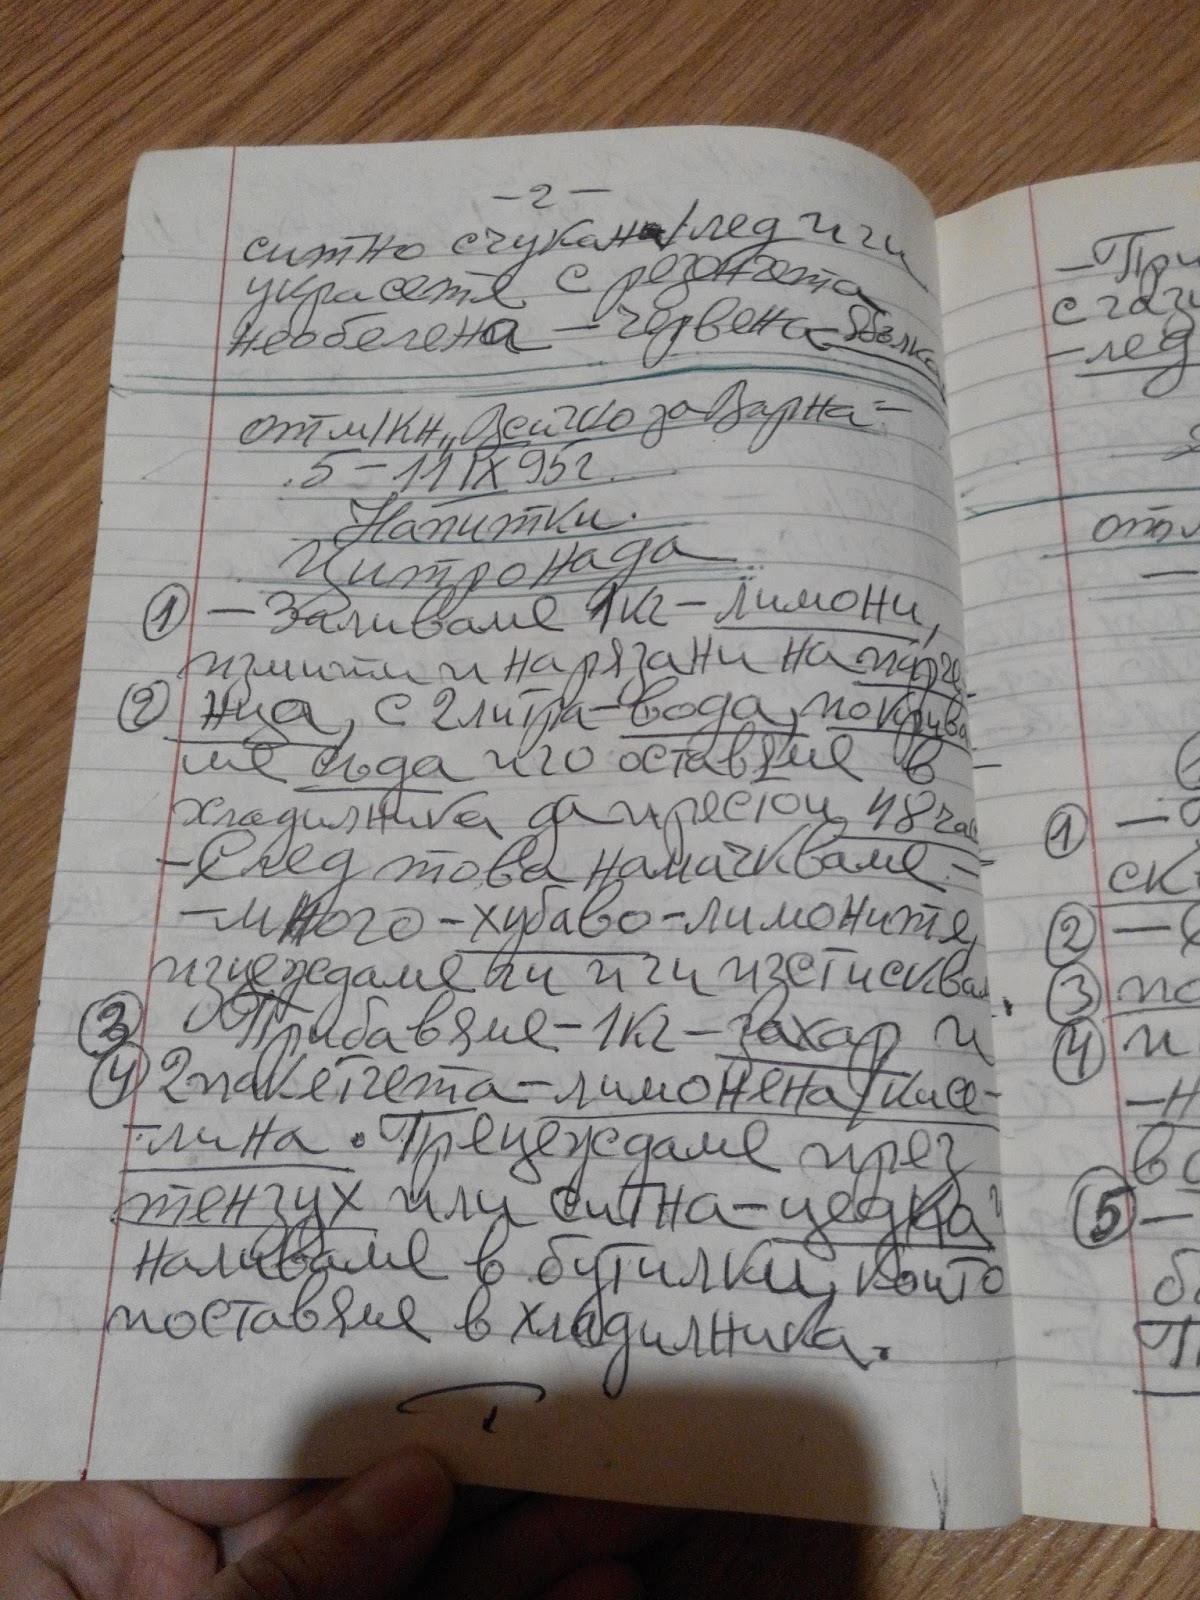 -2-
ситно счукан/лед и ги
украсете с резенчета
необелена - червена - ябълка
отм/кн „Всичко за Варна"
5 - 11 IX 95г.
Напитки.
Цитронада
① - Заливаме 1кг - лимони,
измити и нарязани на парче-
② нца, с 2 литра - вода, покрива
ме съда и го оставяме в -
хладилника да престои 48 час
- След това намачкваме -
- много - хубаво - лимоните,
изцеждаме ги и ги изстисквам.
③ Прибавяме - 1кг - захар и
④ 2 пакетчета - лимонена/кисе-
- лина. Прецеждаме през
тензух или ситна - цедка и
наливаме в бутилки, които
поставяме в хладилника.
- При
с гази
- лед
①
ск
②
③ по
④ и
- н
⑤ -